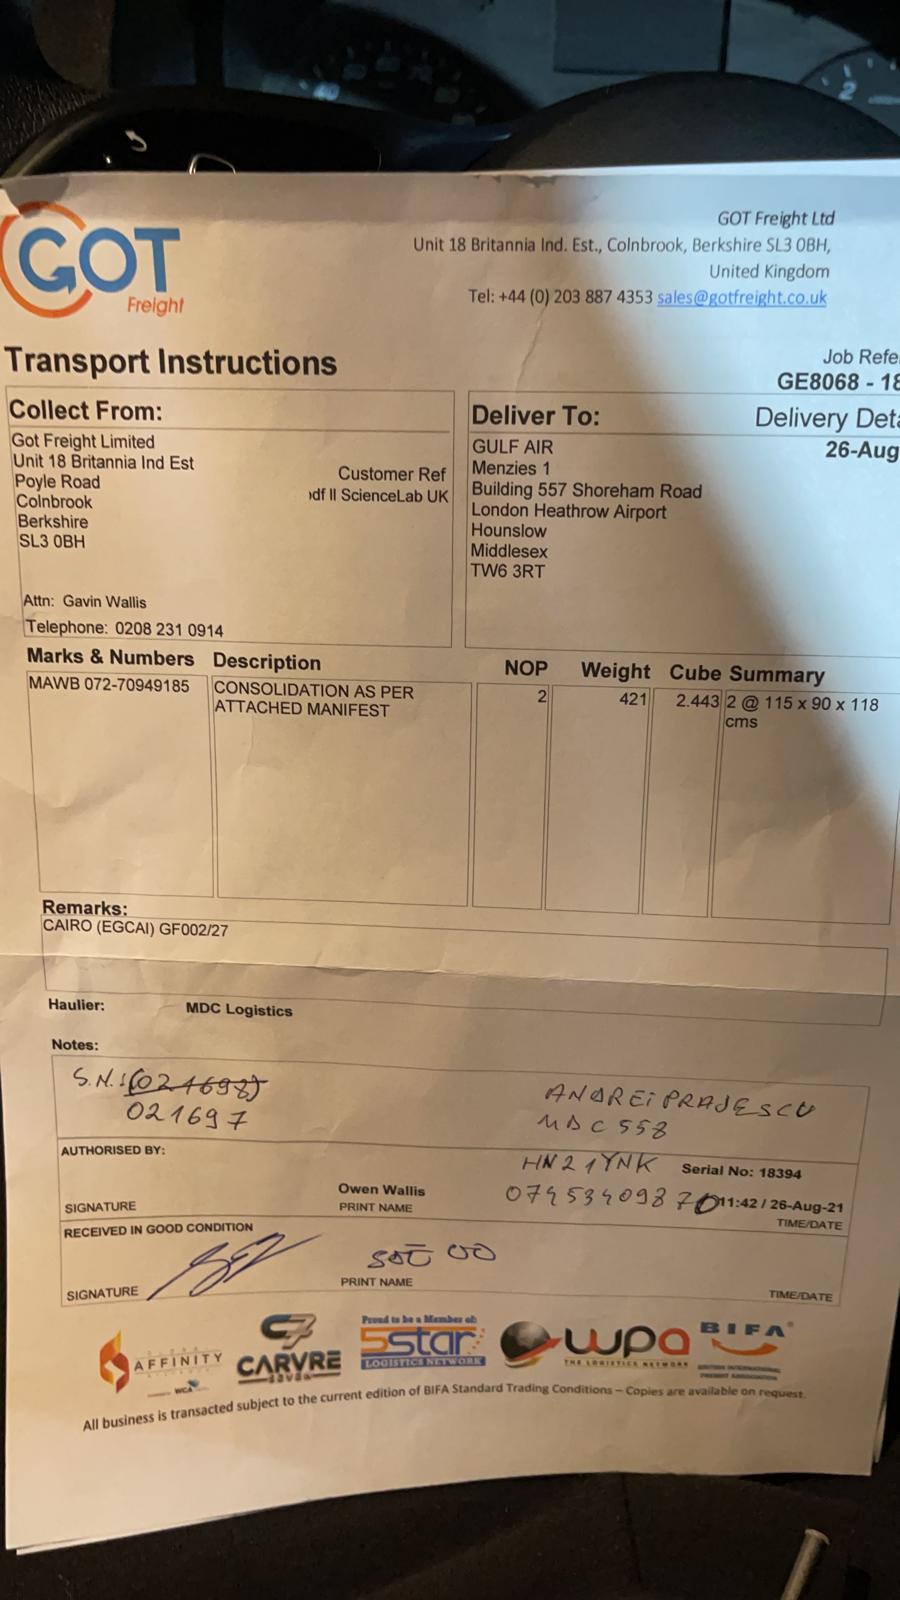 GOT
Freight
GOT Freight Ltd
Unit 18 Britannia Ind. Est., Colnbrook, Berkshire SL3 0BH,
United Kingdom
Tel: +44 (0) 203 887 4353 sales@gotfreight.co.uk
Transport Instructions
Job Refe
GE8068 - 18
Collect From:
Got Freight Limited
Unit 18 Britannia Ind Est
Poyle Road
Colnbrook
Berkshire
SL3 0BH
Customer Ref
df II ScienceLab UK
Attn: Gavin Wallis
Telephone: 0208 231 0914
Deliver To:
GULF AIR
Menzies 1
Building 557 Shoreham Road
London Heathrow Airport
Hounslow
Middlesex
TW6 3RT
Delivery Deta
26-Aug
Marks & Numbers Description NOP Weight Cube Summary
MAWB 072-70949185 CONSOLIDATION AS PER 2 421 2.443 2 @ 115 x 90 x 118
ATTACHED MANIFEST cms
Remarks:
CAIRO (EGCAI) GF002/27
Haulier: MDC Logistics
Notes:
S.N.: (021698)
021697
ANDREI PRAJESCU
MDC 558
HN21YNK
07453409870
AUTHORISED BY:
Serial No: 18394
Owen Wallis 11:42 / 26-Aug-21
SIGNATURE PRINT NAME TIME/DATE
RECEIVED IN GOOD CONDITION
SIGNATURE PRINT NAME TIME/DATE
AFFINITY
WCA
CARVRE
Proud to be a Member of:
5star
LOGISTICS NETWORK
wpa
THE LOGISTICS NETWORK
BIFA
BRITISH INTERNATIONAL
FREIGHT ASSOCIATION
All business is transacted subject to the current edition of BIFA Standard Trading Conditions – Copies are available on request.
2